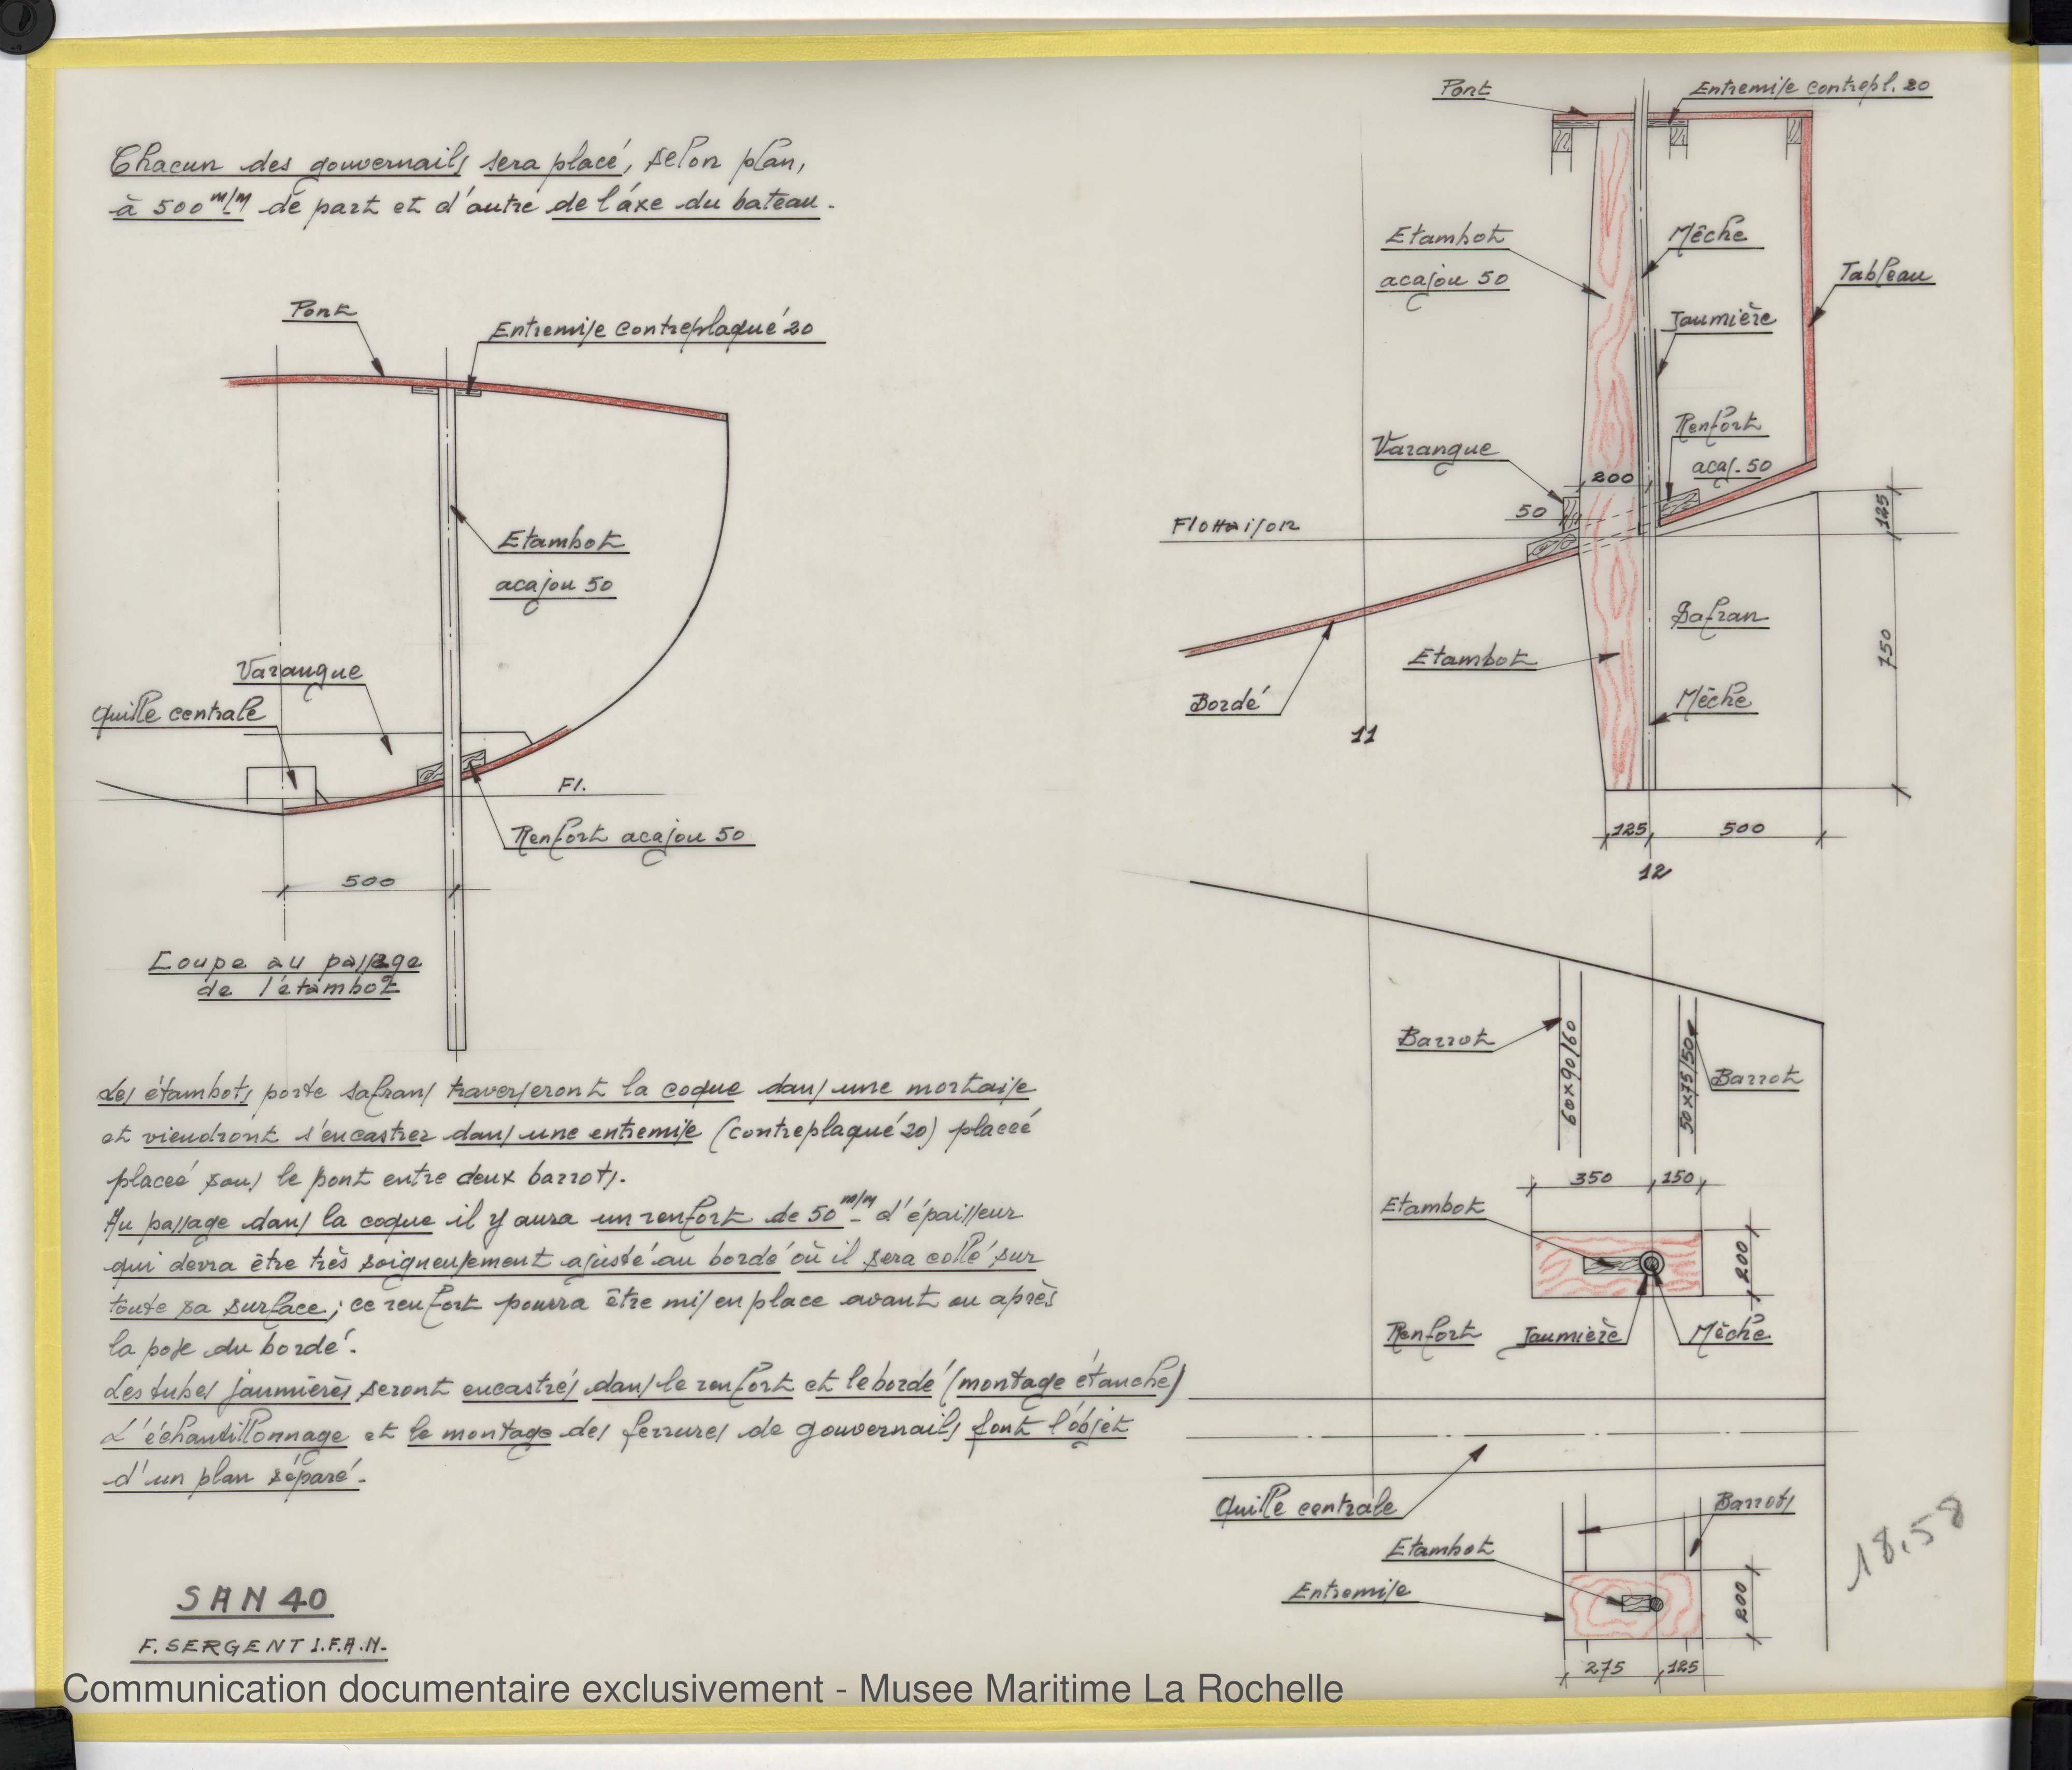 Chacun des gouvernails sera placé, selon plan,
à 500 m/m de part et d'autre de l'axe du bateau.
Pont
Entremise contreplaqué 20
Etambot
acajou 50
Varangue
Quille centrale
Fl.
Renfort acajou 50
500
Coupe au passage
de l'étambot
Les étambots porte safrans traverseront la coque dans une mortaise
et viendront s'encastrer dans une entremise (contreplaqué 20) placeé
placeé sous le pont entre deux barrots.
Au passage dans la coque il y aura un renfort de 50 m/m d'épaisseur
qui devra être très soigneusement ajusté au bordé où il sera collé sur
toute sa surface; ce renfort pourra être mis en place avant ou après
la pose du bordé.
Les tubes jaumières seront encastrés dans le renfort et le bordé (montage étanche)
L'échantillonnage et le montage des ferrures de gouvernails font l'objet
d'un plan séparé.
SAN 40
F. SERGENT I.F.A.N.
Pont
Entremise contrepl. 20
Etambot
acajou 50
Mêche
Tableau
Jaumière
Varangue
Renfort
acaj. 50
200
50
Flottaison
125
Safran
750
Etambot
Mêche
Bordé
11
125
500
12
Barrot
60x90/60
50x75/50
Barrot
350
150
Etambot
200
Renfort
Jaumière
Mêche
Quille centrale
Barrots
Etambot
Entremise
200
275
125
18,58
Communication documentaire exclusivement - Musee Maritime La Rochelle